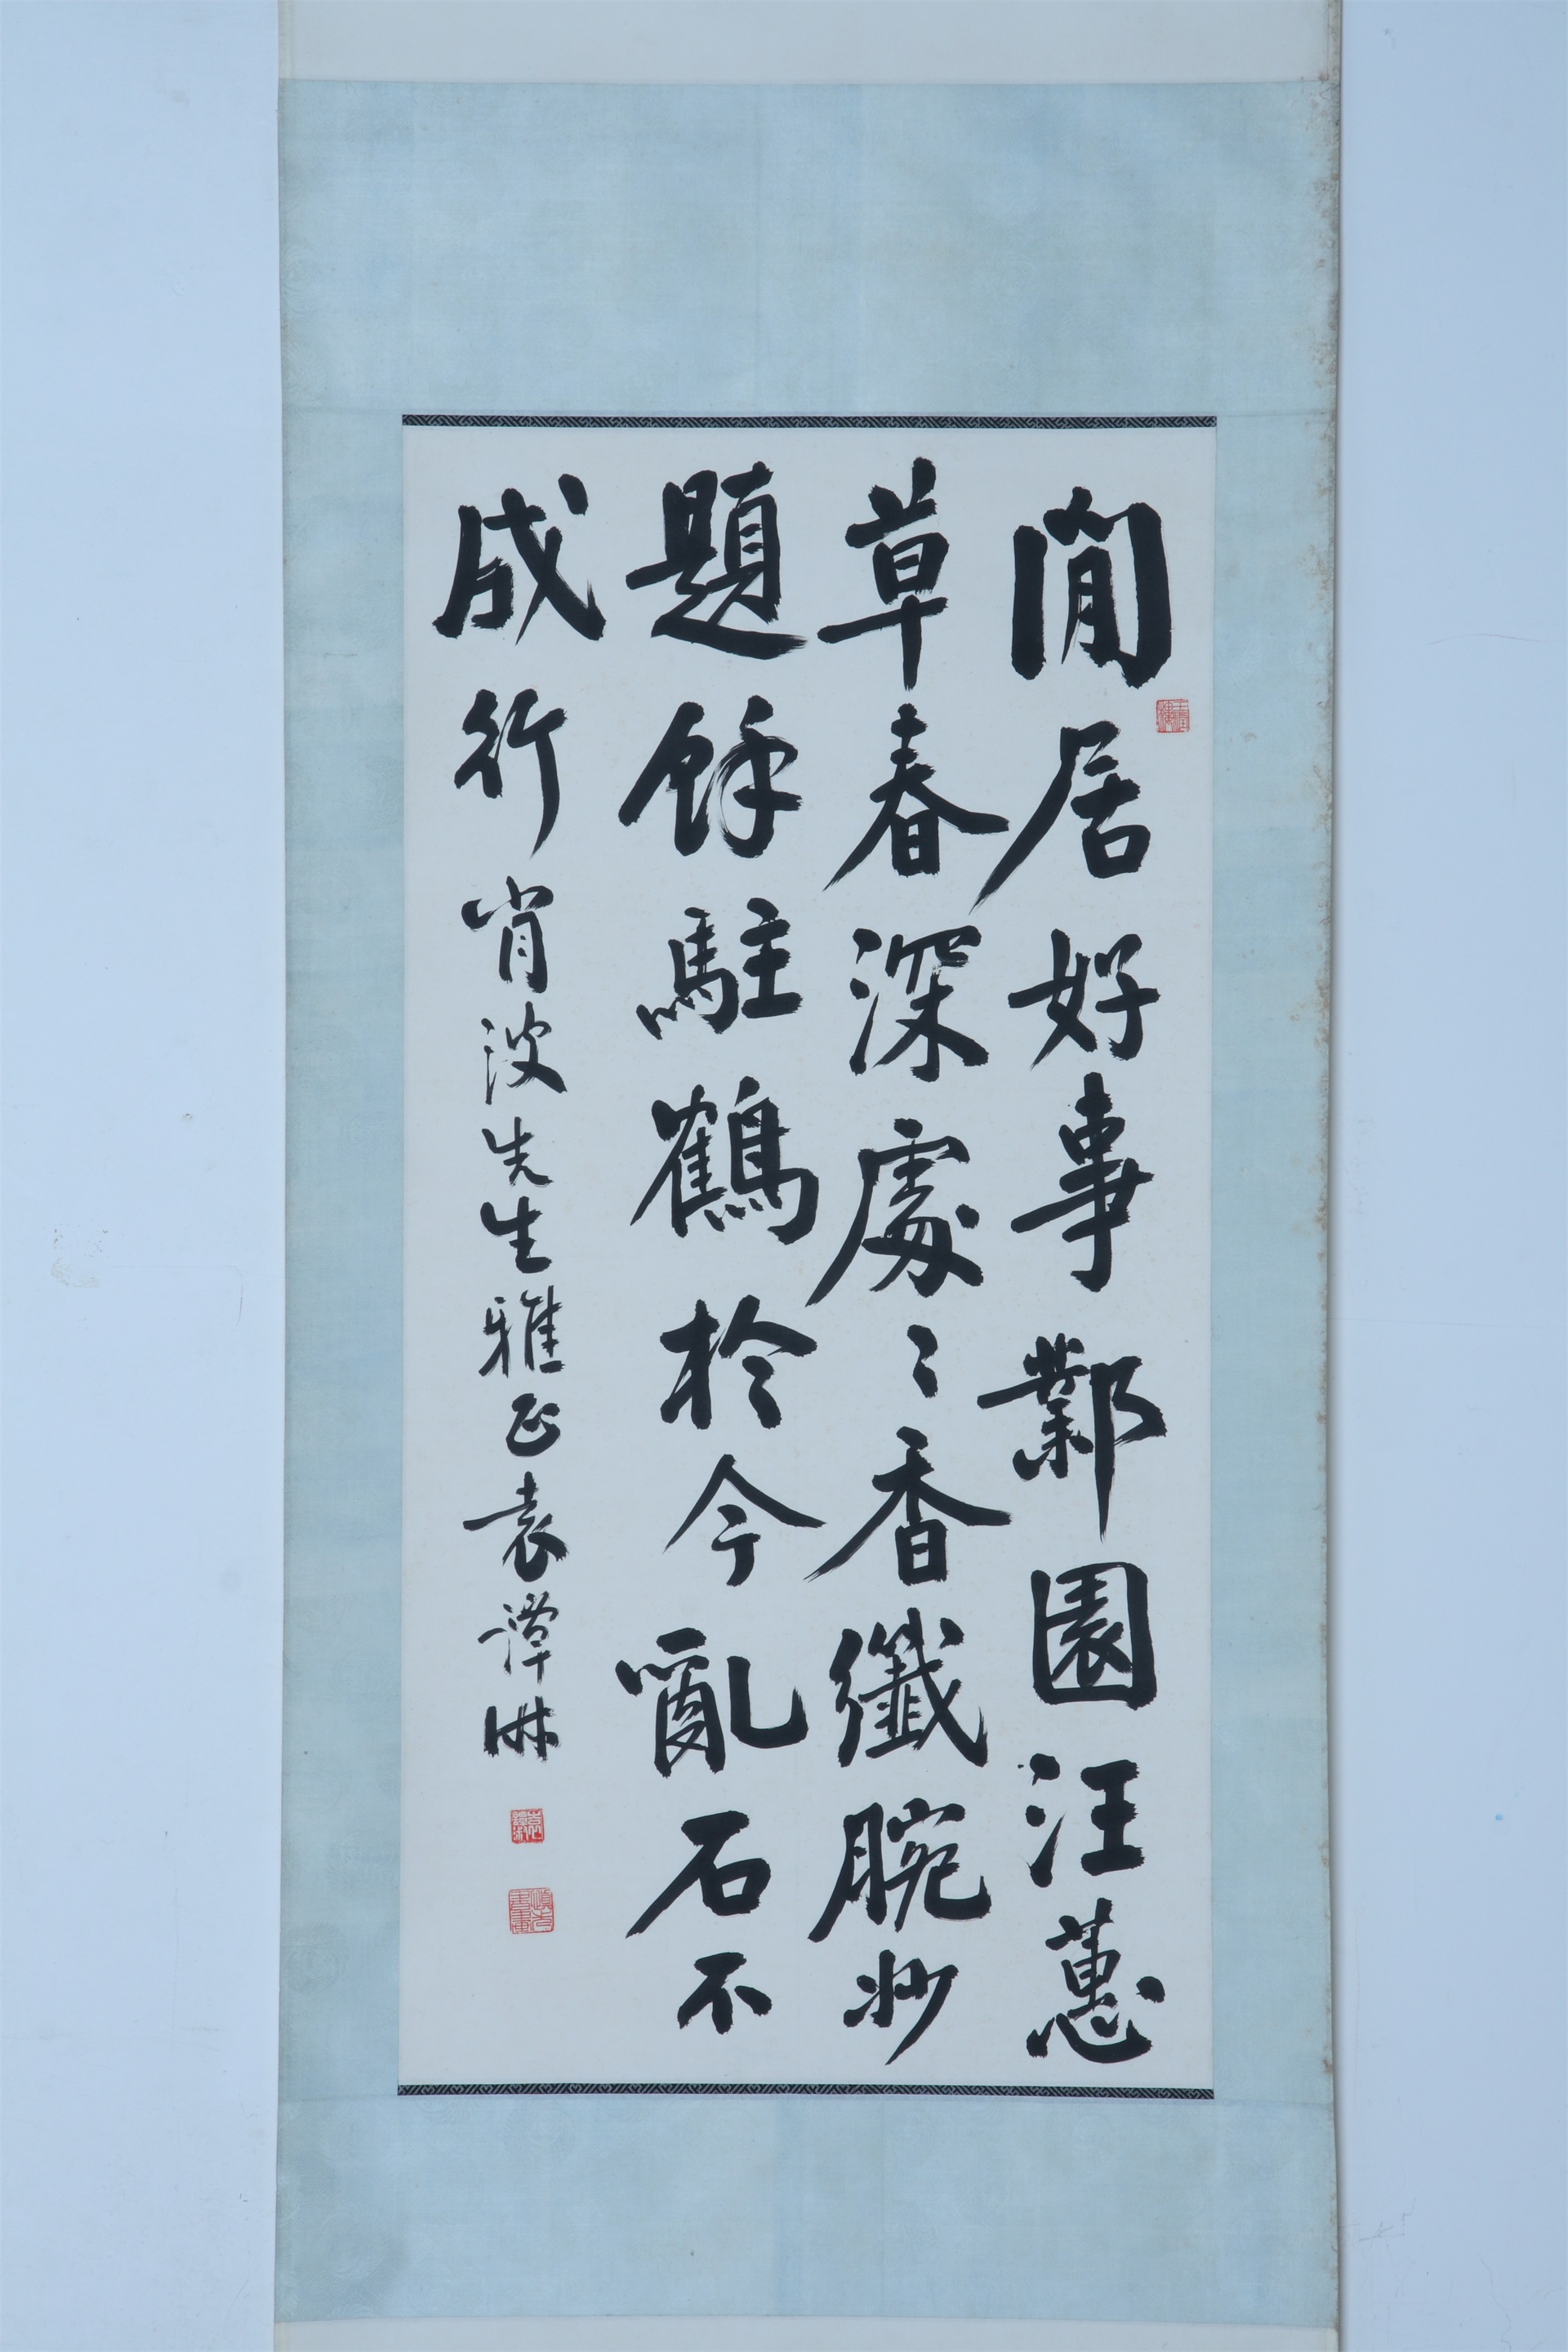 閒居好事鄴園汪蕙
草春深處〻香纖腕妙
題餘駐鶴於今亂石不
成行肖波先生雅正袁譚淋